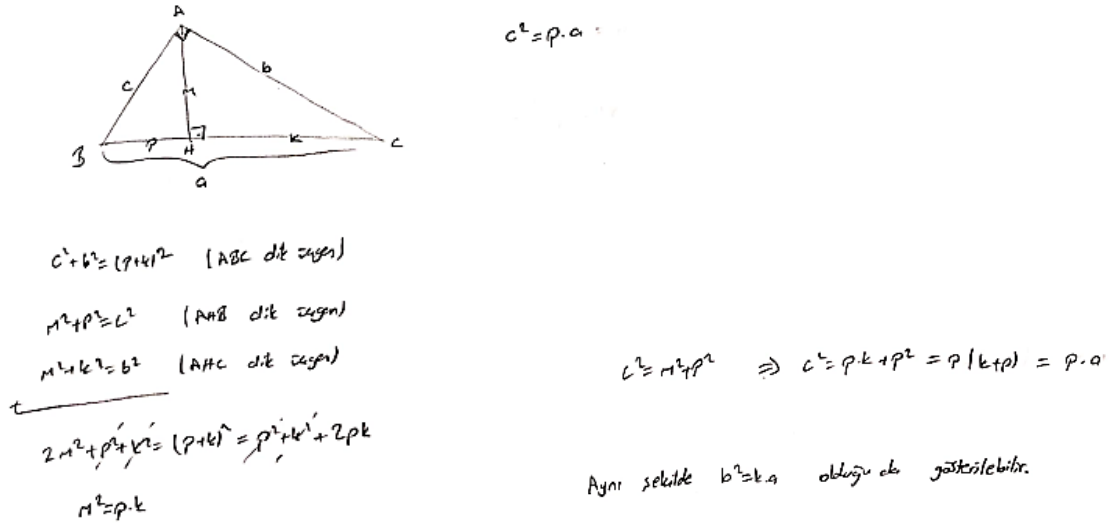 A
c² = p.a
c
b
M
B
p
H
k
C
a
c² + b² = (p+k)² (ABC dik üçgen)
M² + p² = c² (AHB dik üçgen)
M² + k² = b² (AHC dik üçgen)
+
2M² + p² + k² = (p+k)² = p² + k² + 2pk
M² = p.k
c² = M² + p² ⇒ c² = p.k + p² = p(k+p) = p.a
Aynı şekilde b² = k.a olduğu da gösterilebilir.